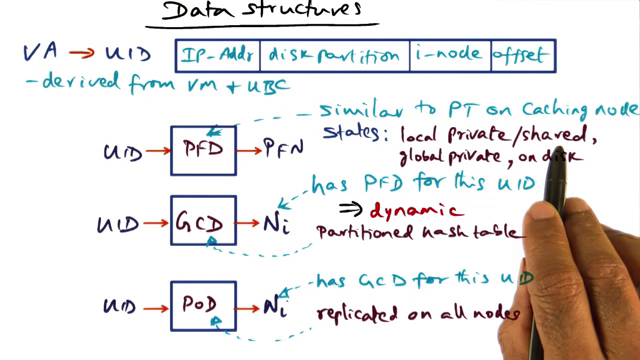 Data structures
VA → UID IP-Addr disk partition i-node offset
- derived from VM + UBC
similar to PT on Caching node
States: local private/shared,
UID → PFD → PFN
global private, on disk
has PFD for this UID
UID → GCD → Ni
⇒ dynamic
partitioned hash table
has GCD for this UID
UID → POD → Ni
replicated on all nodes